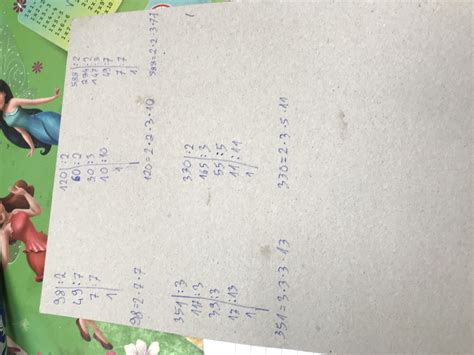 98|:2
49|:7
7|:7
1|
98=2·7·7
120|:2
60|:2
30|:3
10|:10
1|
120=2·2·3·10
588|:2
294|:2
147|:3
49|:7
7|:7
1|
588=2·2·3·7·7
351|:3
117|:3
39|:3
13|:13
1|
351=3·3·3·13
330|:2
165|:3
55|:5
11|:11
1|
330=2·3·5·11